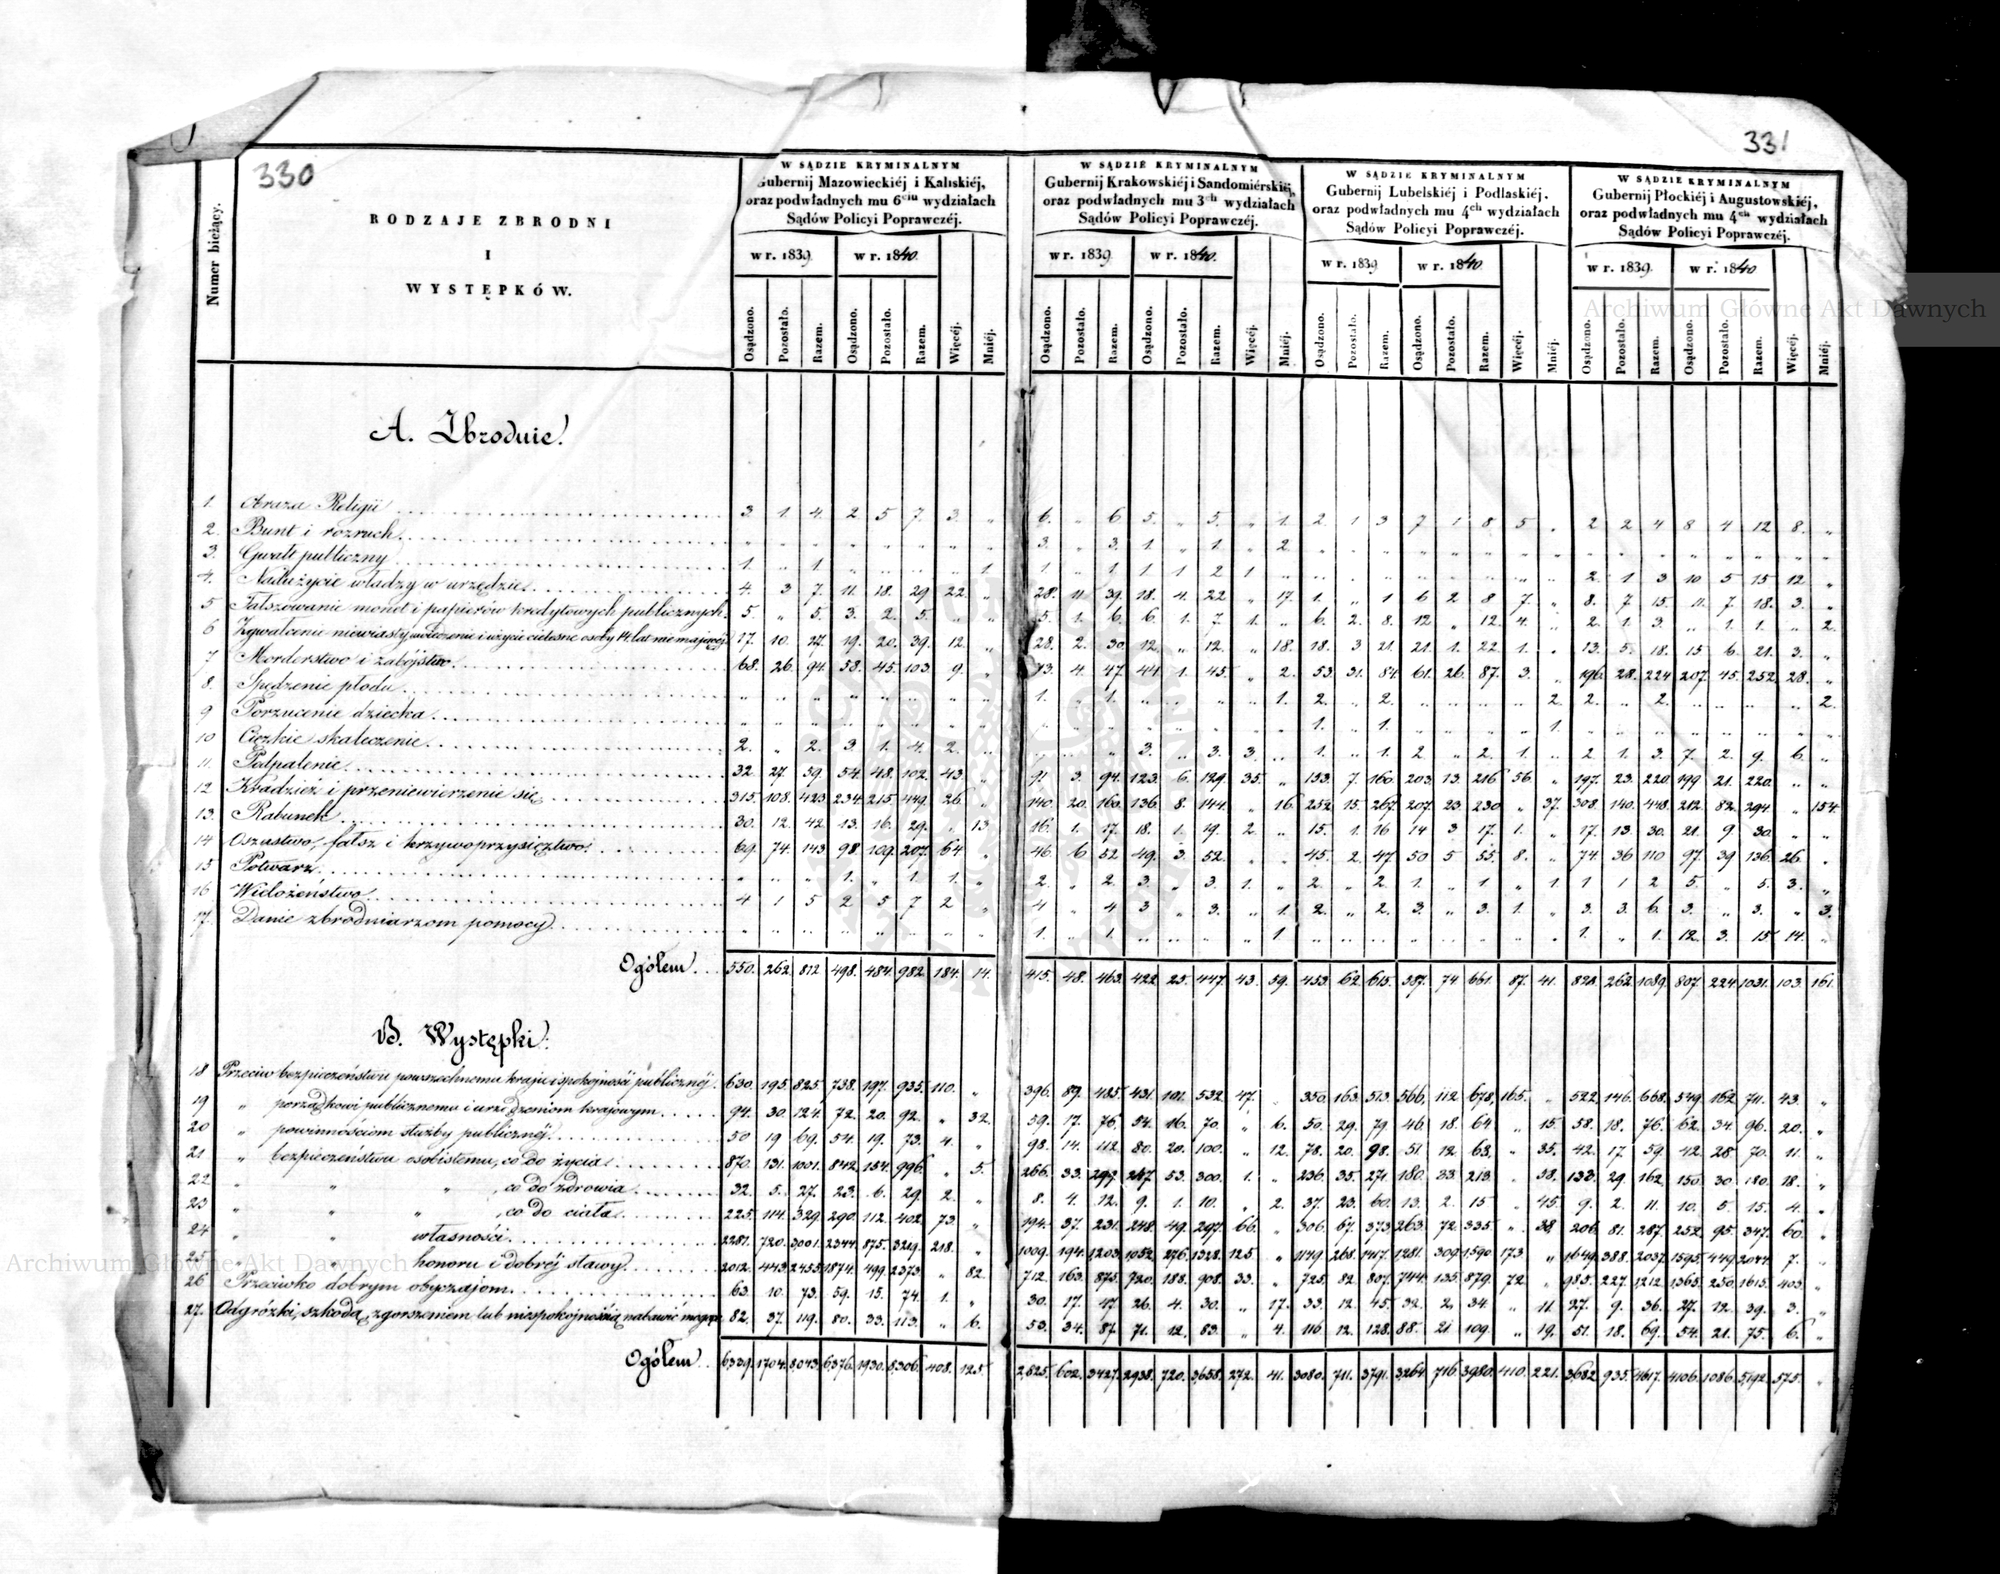 330
331
Numer bieżący.
RODZAJE ZBRODNI
I
WYSTĘPKÓW.
W SĄDZIE KRYMINALNYM
Gubernij Mazowieckiéj i Kaliskiéj,
oraz podwładnych mu 6ciu wydziałach
Sądów Policyi Poprawczéj.
W SĄDZIE KRYMINALNYM
Gubernij Krakowskiéj i Sandomiérskiéj,
oraz podwładnych mu 3ch wydziałach
Sądów Policyi Poprawczéj.
W SĄDZIE KRYMINALNYM
Gubernij Lubelskiéj i Podlaskiéj,
oraz podwładnych mu 4ch wydziałach
Sądów Policyi Poprawczéj.
W SĄDZIE KRYMINALNYM
Gubernij Płockiéj i Augustowskiéj,
oraz podwładnych mu 4ch wydziałach
Sądów Policyi Poprawczéj.
w r. 1839. w r. 1840. w r. 1839. w r. 1840. w r. 1839 w r. 1840. w r. 1839. w r. 1840
Osądzono. Pozostało. Razem. Osądzono. Pozostało. Razem. Więcéj. Mniéj. Osądzono. Pozostało. Razem. Osądzono. Pozostało. Razem. Więcéj. Mniéj. Osądzono. Pozostało. Razem. Osądzono. Pozostało. Razem. Więcéj. Mniéj. Osądzono. Pozostało. Razem. Osądzono. Pozostało. Razem. Więcéj. Mniéj.
A. Zbrodnie.
1. Obraza Religii 3. 1. 4. 2. 5. 7. 3. „ 6. „ 6. 5. „ 5. „ 1. 2. 1 3 7 1 8 5 „ 2 2 4 8 4 12 8. „
2. Bunt i rozruch „ „ „ „ „ „ „ „ 3. „ 3. 1. „ 1. „ 2. „ „ „ „ „ „ „ „ „ „ „ „ „ „ „ „
3. Gwałt publiczny 1. „ 1 „ „ „ „ 1 1 „ 1 1 1 2 1 „ „ „ „ „ „ „ „ „ 2. 1 3 10 5 15 12 „
4. Nadużycie władzy w urzędzie 4. 3 7. 11. 18. 29 22. „ 28. 11. 39. 18. 4. 22. „ 17. 1. „ 1 6 2 8 7. „ 8. 7 15. 11. 7. 18. 3. „
5 Fałszowanie monet i papierów kredytowych publicznych 5 „ 5. 3. 2. 5. „ „ 5. 1. 6. 6. 1. 7. 1 „ 6. 2. 8. 12 „ 12. 4. „ 2. 1. 3. „ 1. 1. „ 2.
6 Zgwałcenie niewiasty, uwiedzenie i użycie cielesne osoby 14 lat nie mającej 17. 10. 27. 19. 20. 39. 12. „ 28. 2. 30. 12. „ 12. „ 18. 18. 3 21. 21. 1. 22. 1. „ 13. 5. 18. 15 6. 21. 3. „
7 Morderstwo i zabójstwo 68. 26. 94. 58. 45. 103. 9. „ 43. 4. 47. 44. 1. 45. „ 2. 53. 31. 84. 61. 26. 87. 3. „ 196. 28. 224 207. 45. 252. 28. „
8. Spędzenie płodu „ „ „ „ „ „ „ „ 1. „ 1. „ „ „ „ 1. 2. „ 2. „ „ „ „ 2. 2. „ 2. „ „ „ „ 2.
9 Porzucenie dziecka „ „ „ „ „ „ „ „ „ „ „ „ „ „ „ „ 1. „ 1. „ „ „ „ 1. „ „ „ „ „ „ „ „
10 Ciężkie skaleczenie 2. „ 2. 3. 1. 4. 2. „ „ „ „ 3. „ 3. 3. „ 1. „ 1. 2 „ 2. 1. „ 2 1. 3. 7. 2. 9. 6. „
11. Podpalenie 32. 27. 59. 54. 48. 102. 43. „ 91 3. 94. 123. 6. 129. 35. „ 153. 7. 160. 203. 13. 216 56 „ 197. 23. 220. 199 21. 220. „ „
12 Kradzież i przeniewierzenie się 315. 108. 423. 234. 215. 449. 26. „ 140. 20. 160. 136. 8. 144. „ 16. 252. 15. 267. 207. 23. 230 „ 37. 308. 140. 448. 212. 82. 294. „ 154.
13. Rabunek 30. 12. 42. 13. 16. 29. „ 13 16. 1. 17. 18. 1. 19. 2. „ 15. 1. 16 14 3 17. 1. „ 17. 13. 30. 21. 9 30. „ „
14 Oszustwo, fałsz i krzywoprzysięztwo 69. 74. 143. 98. 109. 207. 64 „ 46. 6 52 49. 3. 52. „ „ 45. 2. 47. 50 5 55. 8. „ 74. 36 110 97. 39 136. 26. „
15 Potwarz „ „ „ 1. „ 1. 1. „ 2. „ 2. 3. „ 3. 1. „ 2. „ 2. 1. „ 1. „ 1. 1 1 2 5. „ 5. 3. „
16 Wielożeństwo 4 1 5 2 5 7 2 „ 4 „ 4 3 „ 3. „ 1. 2. „ 2. 3. „ 3. 1. „ 3. 3. 6. 3. „ 3. „ 3.
17. Danie zbrodniarzom pomocy „ „ „ „ „ „ „ „ 1. „ 1. „ „ „ „ 1. „ „ „ „ „ „ „ „ 1. „ 1. 12. 3. 15. 14. „
Ogółem 550. 262. 812 498. 484. 982. 184. 14. 415. 48. 463. 422. 25. 447. 43. 59. 62. 615. 587. 74 661. 87. 41. 828. 262. 1089. 807. 224. 1031. 103. 161.
B. Występki.
18 Przeciw bezpieczeństwu powszechnemu kraju i spokojności publicznéj 630. 195. 825. 738. 197. 935. 110. „ 396. 89. 485. 431. 101. 532. 47. „ 350. 163. 513. 566. 112. 678. 165. „ 522. 146. 668. 549. 162. 711. 43. „
19 „ porządkowi publicznemu i urządzeniom krajowym 94. 30 124. 72. 20. 92. „ 32. 59. 17. 76. 54. 16. 70. „ 6. 50. 29. 79 46 18. 64 „ 15. 58. 18. 76. 62. 34. 96. 20. „
20 „ powinnościom służby publicznéj 50 19 69. 54. 19. 73. 4. „ 98. 14. 112. 80. 20. 100. „ 12. 78. 20. 98. 51. 12 63. „ 35. 42. 17 59. 42 28 70. 11. „
21 „ bezpieczeństwu osobistemu, co do życia 870. 131. 1001. 842. 154. 996. „ 5. 266. 33. 299. 247. 53. 300. 1. „ 236. 35. 271. 180. 33. 213. „ 58. 133. 29. 162. 150 30 180. 18. „
22 „ „ „ , co do zdrowia 32. 5. 27. 23. 6. 29. 2. „ 8. 4. 12. 9. 1. 10. „ 2. 37. 23. 60. 13. 2. 15 „ 45. 9. 2. 11. 10. 5. 15. 4. „
23 „ „ „ , co do ciała 225. 114. 329. 290. 112. 402. 73. „ 194. 37. 231. 248. 49. 297. 66. „ 306. 67. 373. 263. 72. 335. „ 38 206. 81. 287. 252. 95. 347. 60. „
24 „ „ własności 2281. 720. 3001. 2344. 875. 3219. 218. „ 1009. 194. 1203. 1052. 276. 1328. 125. „ 1149. 268. 1417. 1281. 309. 1590. 173. „ 1649. 388. 2037. 1595. 449. 2044. 7. „
25 „ „ honoru i dobrej sławy 2012. 443. 2455. 1874. 499. 2373. „ 82. 712. 163. 875. 720. 188. 908. 33. „ 725. 82. 807. 744. 135. 879. 72 „ 985. 227. 1212. 1365. 250. 1615. 403. „
26 Przeciwko dobrym obyczajom 63. 10. 73. 59. 15. 74. 1. „ 30. 17. 47 26. 4. 30. „ 17. 33. 12. 45. 32. 2. 34. „ 11. 27. 9. 36. 27. 12. 39. 3. „
27. Odgróżki, szkodą, zgorszeniem lub niespokojnością nabawić mogące 82. 37. 119. 80. 33. 113. „ 6. 53. 34. 87. 71. 12. 83. „ 4. 116 12. 128. 88. 21 109. „ 19. 51. 18. 69. 54. 21. 75. 6. „
Ogółem 6339. 1704. 8043. 6376. 1930. 8306. 408. 125. 2825. 602. 3427. 2938. 720. 3658. 272. 41. 3080. 711. 3791. 3264. 716. 3980. 410. 221. 3682. 935. 4617. 4106. 1086. 5192. 575. „
Archiwum Główne Akt Dawnych
Archiwum Główne Akt Dawnych